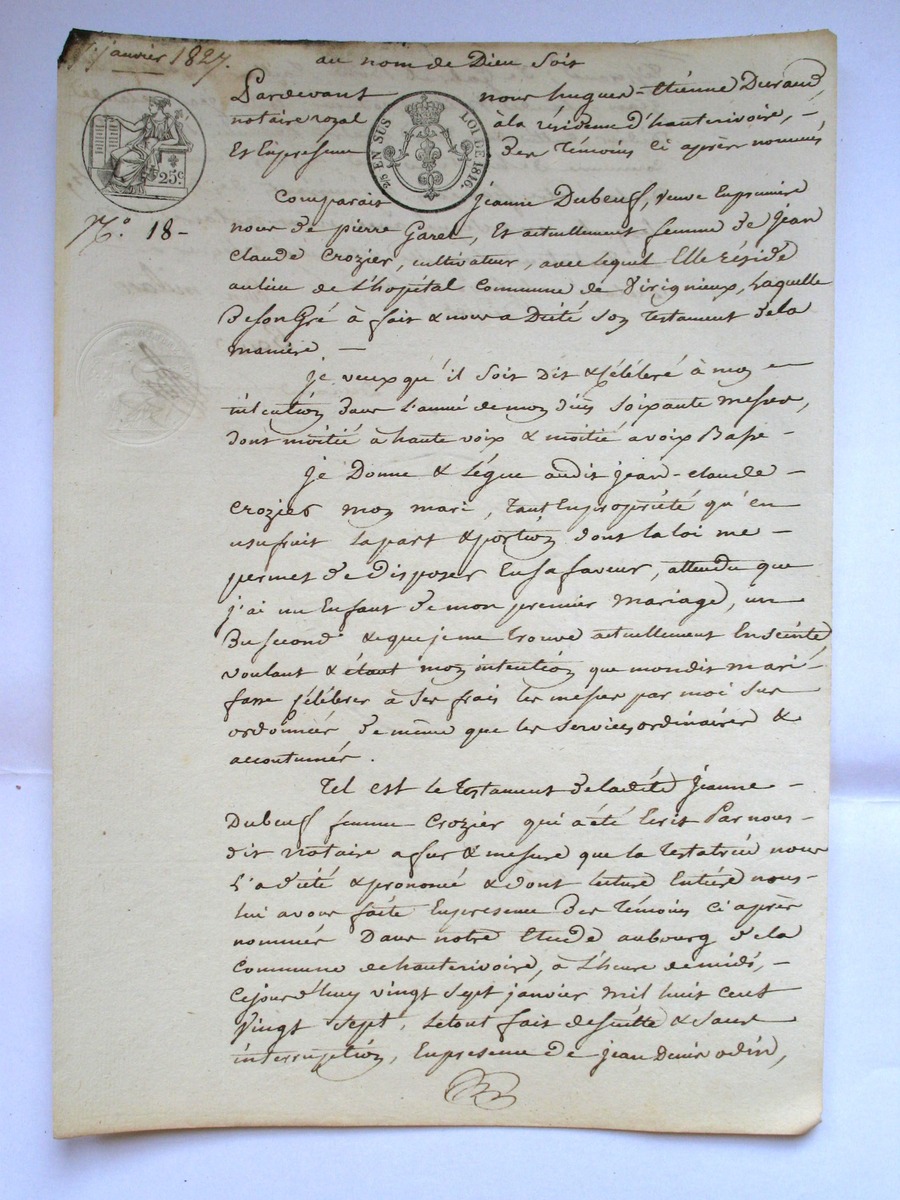 27 janvier 1827.
au nom de Dieu soit
Pardevant nous hugues-Étienne Durand,
notaire royal à la résidence d'hauterivoire, -
Et Enpresence Des Témoins ci après nommés
25 EN SUS LOI DE 1816.
25c.
N.o 18-
Comparait jeanne Dubeuf, veuve Enpremière
nous de pierre Garel, Et actuellement femme de Jean
claude Crozier, cultivateur, avec lequel Elle réside
aulieu de L'hopital Commune de Virignieux, Laquelle
De son Gré à fait & nous a Dicté son testament dela
manière -
je veux qu'il soit dit & Célébré à mon -
intention dans L'année de mon décès soixante messes,
dont moitié à haute voix & moitié a voix Basse -
je Donne & Lègue audit jean-claude -
Crozier mon mari, tant Enpropriété qu'en
usufruit la part & portion dont la loi me -
permet de disposer En sa faveur, attendu que
j'ai un Enfant de mon premier mariage, un
Du second & que je me trouve actuellement Enceinte
voulant & étant mon intention que mondit mari -
fasse célébrer à ses frais les messes par moi sus
ordonnées de même que les services ordinaires &
accoutumés.
Tel est le testament de ladite jeanne -
Dubeuf femme Crozier qui a été Ecrit Par nous -
dit notaire a fur & mesure que la testatrice nous
L'a dicté & prononcé & dont lecture Entière nous -
lui avons faite Enpresence Des Témoins ci après
nommés Dans notre Etude aubourg de la
Commune de hauterivoire, à L'heure de midi, -
Cejourd'huy vingt sept janvier mil huit cent
vingt sept, letout fait de suitte & sans
interruption, Enpresence de jean Denis odin,